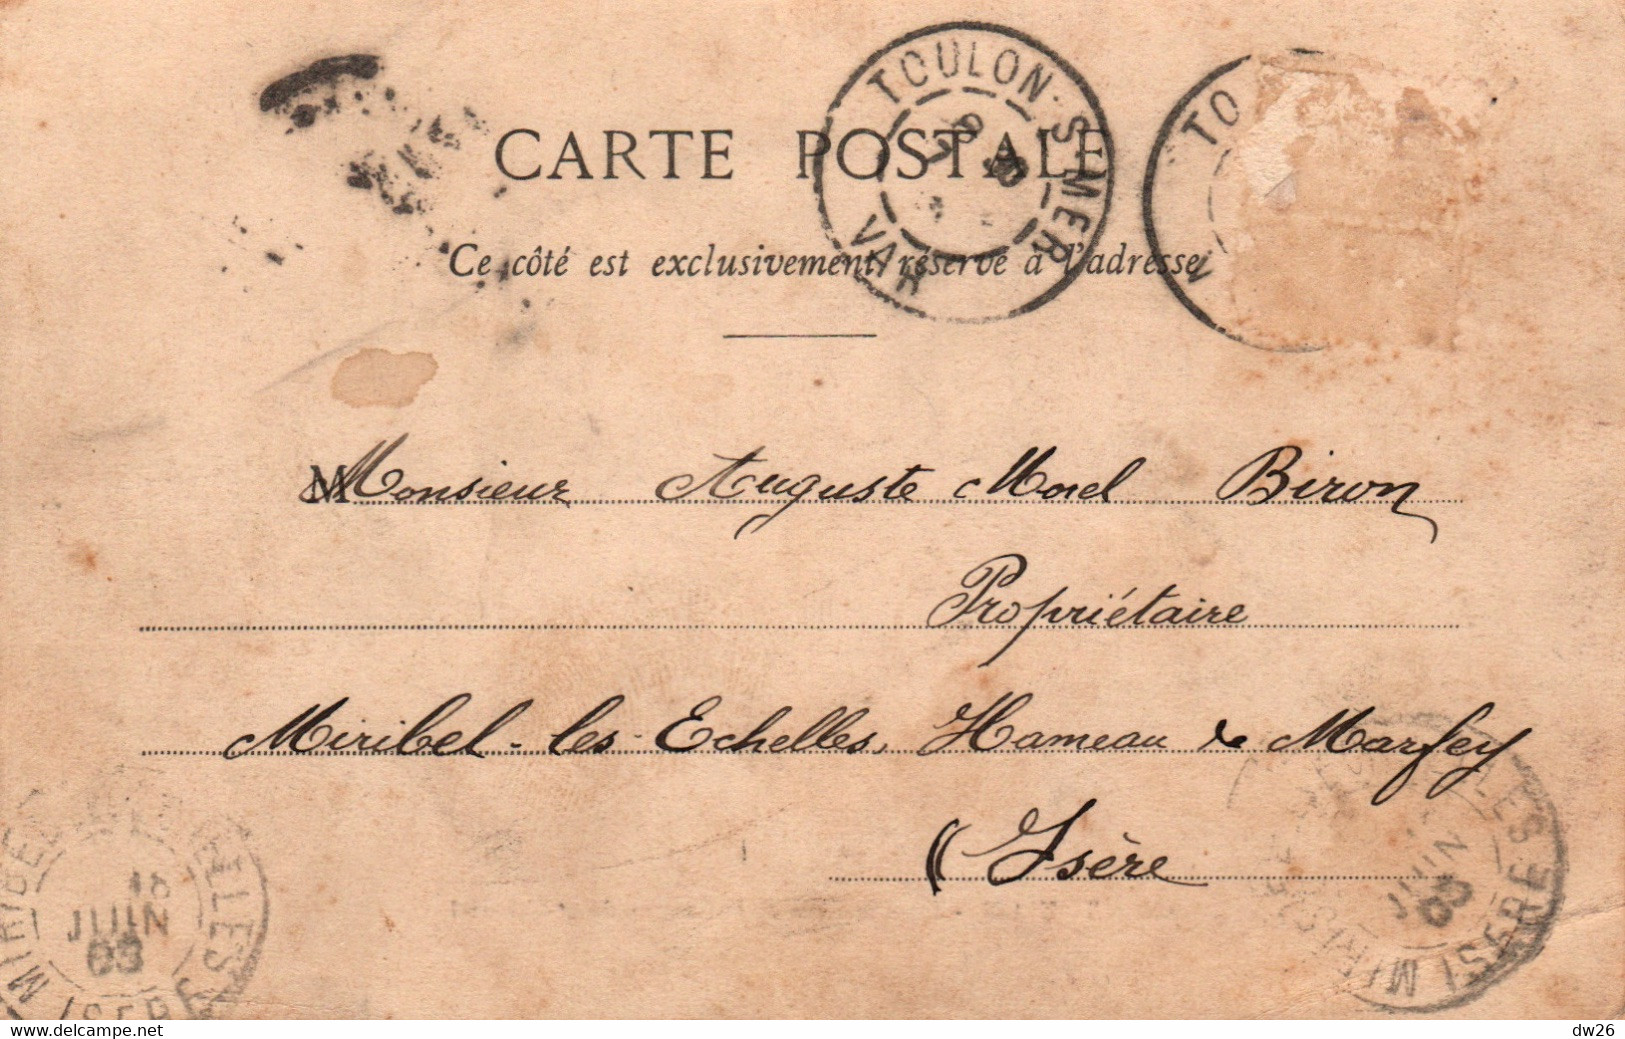 CARTE POSTALE
TOULON-S-MER
VAR
TO
Ce côté est exclusivement réservé à l'adresse
M
Monsieur Auguste Morel Biron
Propriétaire
Miribel-les-Echelles, Hameau de Marfey
(Isère
MIRIBEL
ELLES
18
JUIN
03
ISERE
LES
JUIN
03
ISERE
delcampe.net
dw26